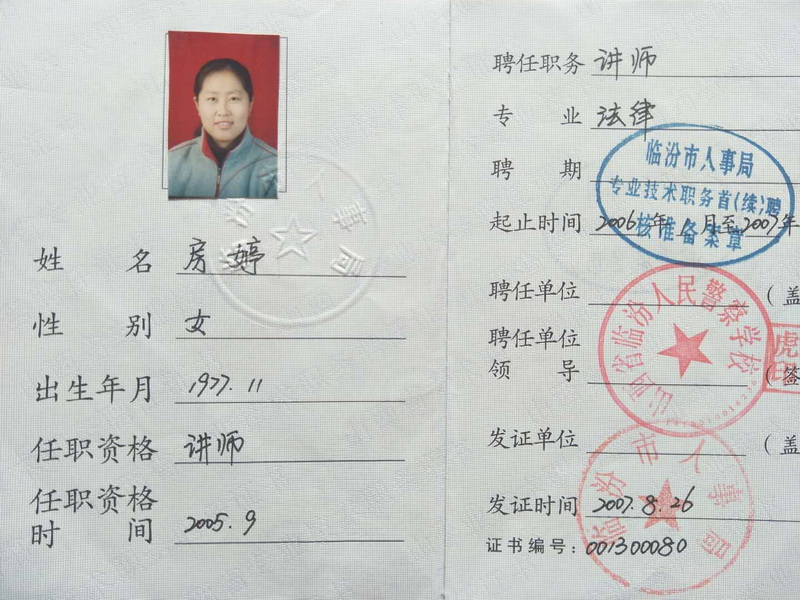 姓 名 房婷
性 别 女
出生年月 1977.11
任职资格 讲师
任职资格
时 间 2005.9
聘任职务 讲师
专 业 法律
聘 期
起止时间 2006年1月至2007年
临汾市人事局
专业技术职务首(续)聘
核准备案章
聘任单位 (盖
山西省临汾人民警察学校
聘任单位
领 导 (签
虎
印
发证单位 (盖
临汾市人事局
发证时间 2007.8.26
证书编号:001300080